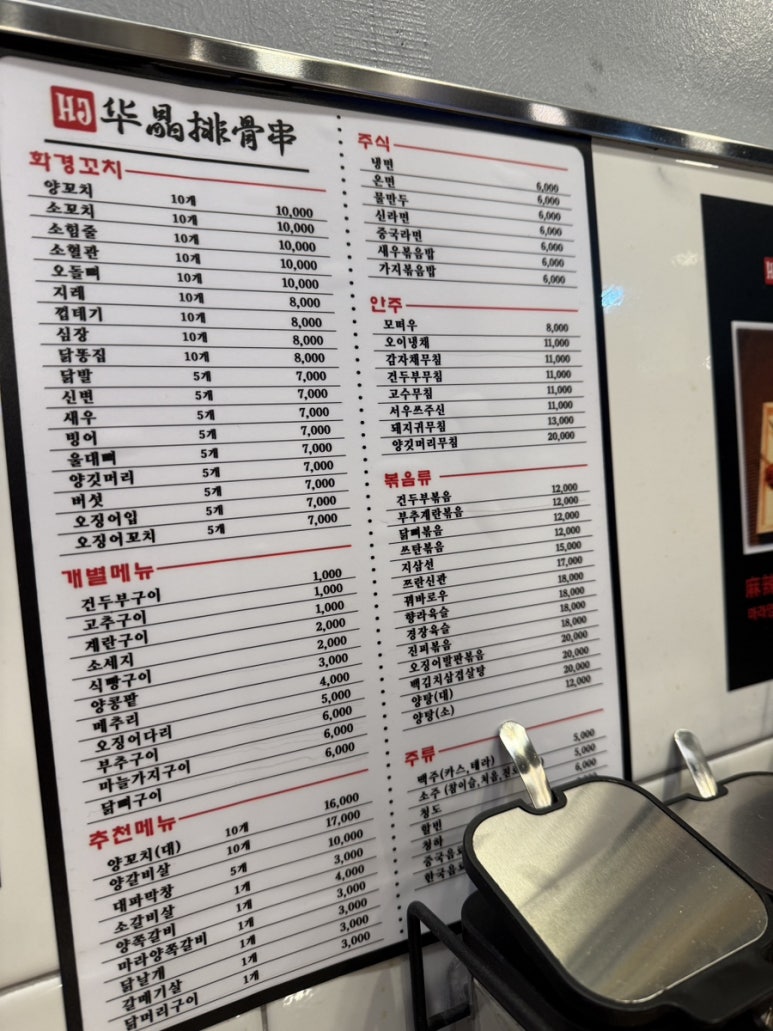 HJ 华晶排骨串
화경꼬치
양꼬치 10개 10,000
소꼬치 10개 10,000
소힘줄 10개 10,000
소혈관 10개 10,000
오돌뼈 10개 10,000
지레 10개 8,000
껍데기 10개 8,000
심장 10개 8,000
닭똥집 10개 8,000
닭발 5개 7,000
신변 5개 7,000
새우 5개 7,000
빙어 5개 7,000
울대뼈 5개 7,000
양깃머리 5개 7,000
버섯 5개 7,000
오징어입 5개 7,000
오징어꼬치 5개 7,000
개별메뉴
건두부구이 1,000
고추구이 1,000
계란구이 1,000
소세지 2,000
식빵구이 2,000
양콩팥 3,000
메추리 4,000
오징어다리 5,000
부추구이 6,000
마늘가지구이 6,000
닭뼈구이 6,000
추천메뉴
양꼬치(대) 10개 16,000
양갈비살 10개 17,000
대파막창 5개 10,000
소갈비살 1개 3,000
양쪽갈비 1개 4,000
마라양쪽갈비 1개 3,000
닭날개 1개 3,000
갈매기살 1개 3,000
닭머리구이 1개 3,000
주식
냉면 6,000
온면 6,000
물만두 6,000
신라면 6,000
중국라면 6,000
새우볶음밥 6,000
가지볶음밥 6,000
안주
모며우 8,000
오이냉채 11,000
감자채무침 11,000
건두부무침 11,000
고수무침 11,000
서우쓰주신 11,000
돼지귀무침 13,000
양깃머리무침 20,000
볶음류
건두부볶음 12,000
부추계란볶음 12,000
닭뼈볶음 12,000
쓰탄볶음 12,000
지삼선 15,000
쯔란신관 17,000
꿔바로우 18,000
향라육슬 18,000
경장육슬 18,000
진피볶음 18,000
오징어발판볶음 20,000
백김치삼겹살탕 20,000
양탕(대) 20,000
양탕(소) 12,000
주류
맥주(카스,테라) 5,000
소주 (참이슬,처음 5,000
청도 6,000
할빈
청하
중국음료
한국음료
麻辣